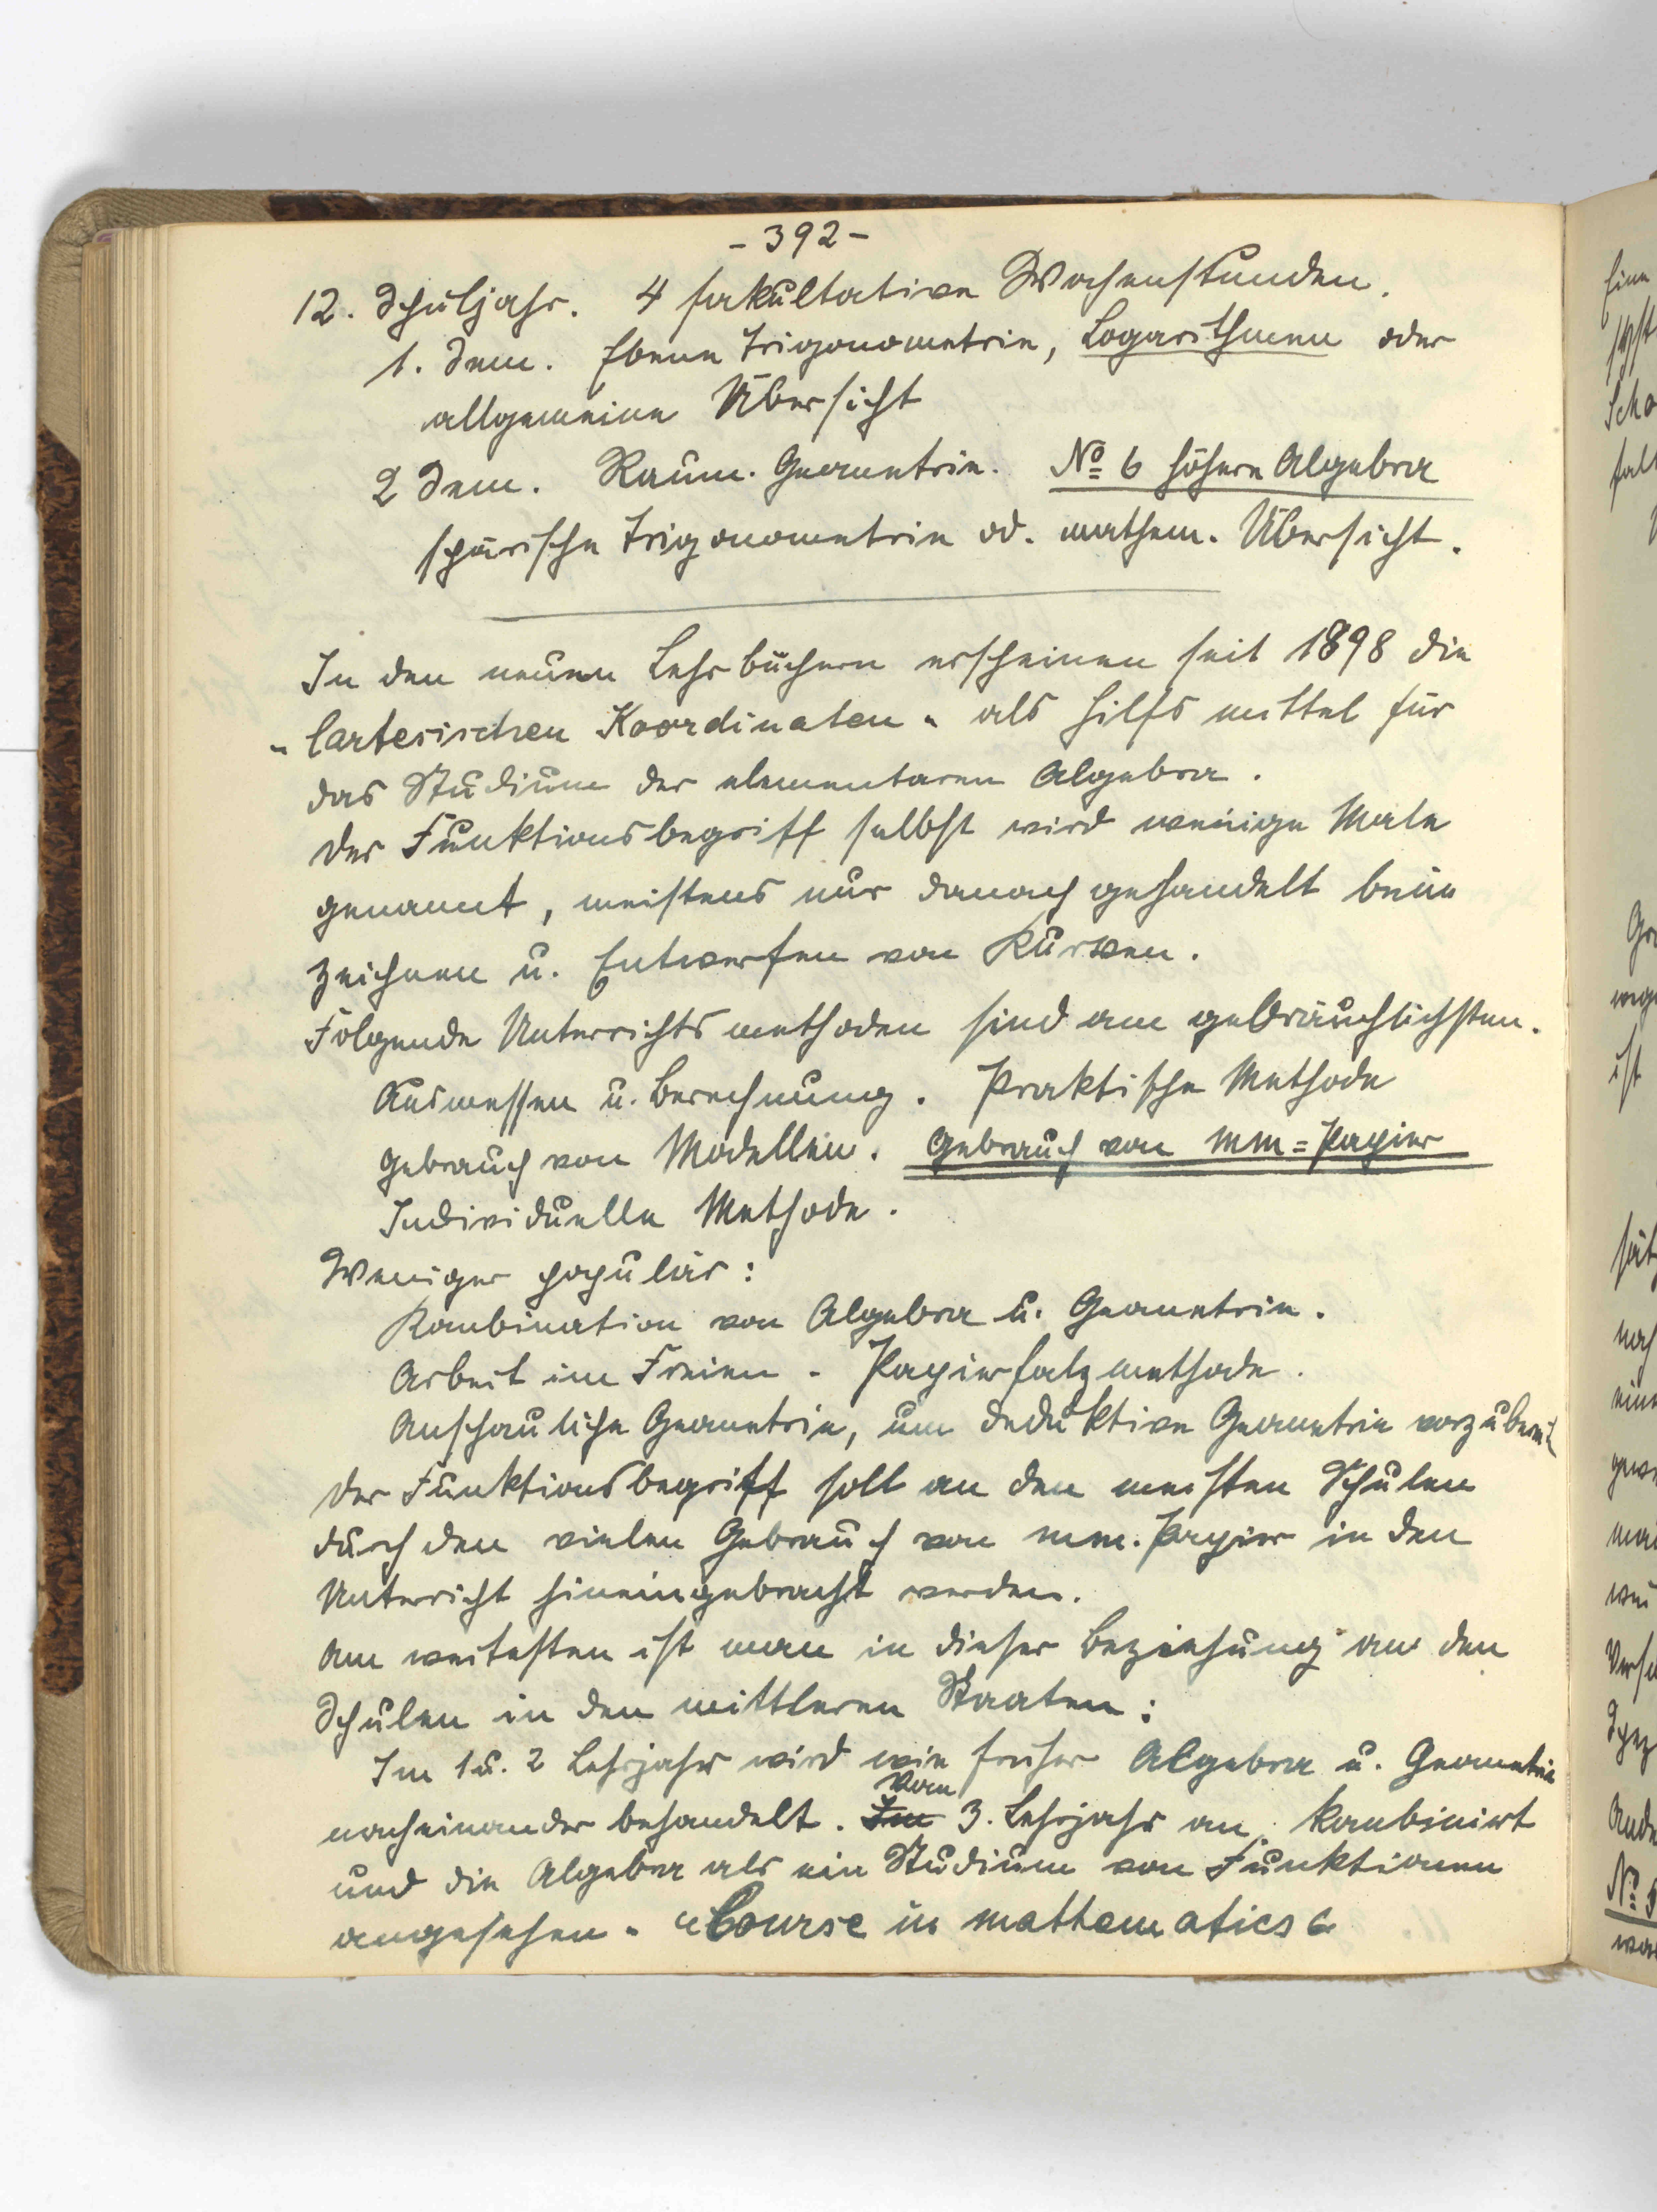 - 392 -
12. Schuljahr. 4 fakultative Wochenstunden.
1. Sem. Ebene Trigonometrie, Logarithmen oder
allgemeine Übersicht
2 Sem. Raum. Geometrie. No 6 höhere Algebra
spärische Trigonometrie od. mathem. Übersicht.
In den neuen Lehrbüchern erscheinen seit 1898 die
"Cartesischen Koordinaten" als Hilfsmittel für
das Studium der elementaren Algebra.
Der Funktionsbegriff selbst wird wenige Male
genannt, meistens nur danach gehandelt beim
Zeichnen u. Entwerfen von Kurven.
Folgende Unterrichtsmethoden sind am gebräuchlichsten.
Ausmessen u. Berechnung. Praktische Methode
Gebrauch von Modellen. Gebrauch von mm=Papier
Individuelle Methode.
Weniger populär:
Kombination von Algebra u. Geometrie.
Arbeit im Freien - Papierfalzmethode.
Anschauliche Geometrie, um deduktive Geometrie
Der Funktionsbegriff soll an den meisten Schulen
durch den vielen Gebrauch von mm. Papier in den
Unterricht hineingebracht werden.
Am weitesten ist man in dieser Beziehung an den
Schulen in den mittleren Staaten:
Im 1 u. 2 Lehrjahr wird wie früher Algebra u. Geometrie
nacheinander behandelt. Im vom 3. Lehrjahr an kombiniert
und die Algebra als ein Studium von Funktionen
angesehen. "Course in mathematics"